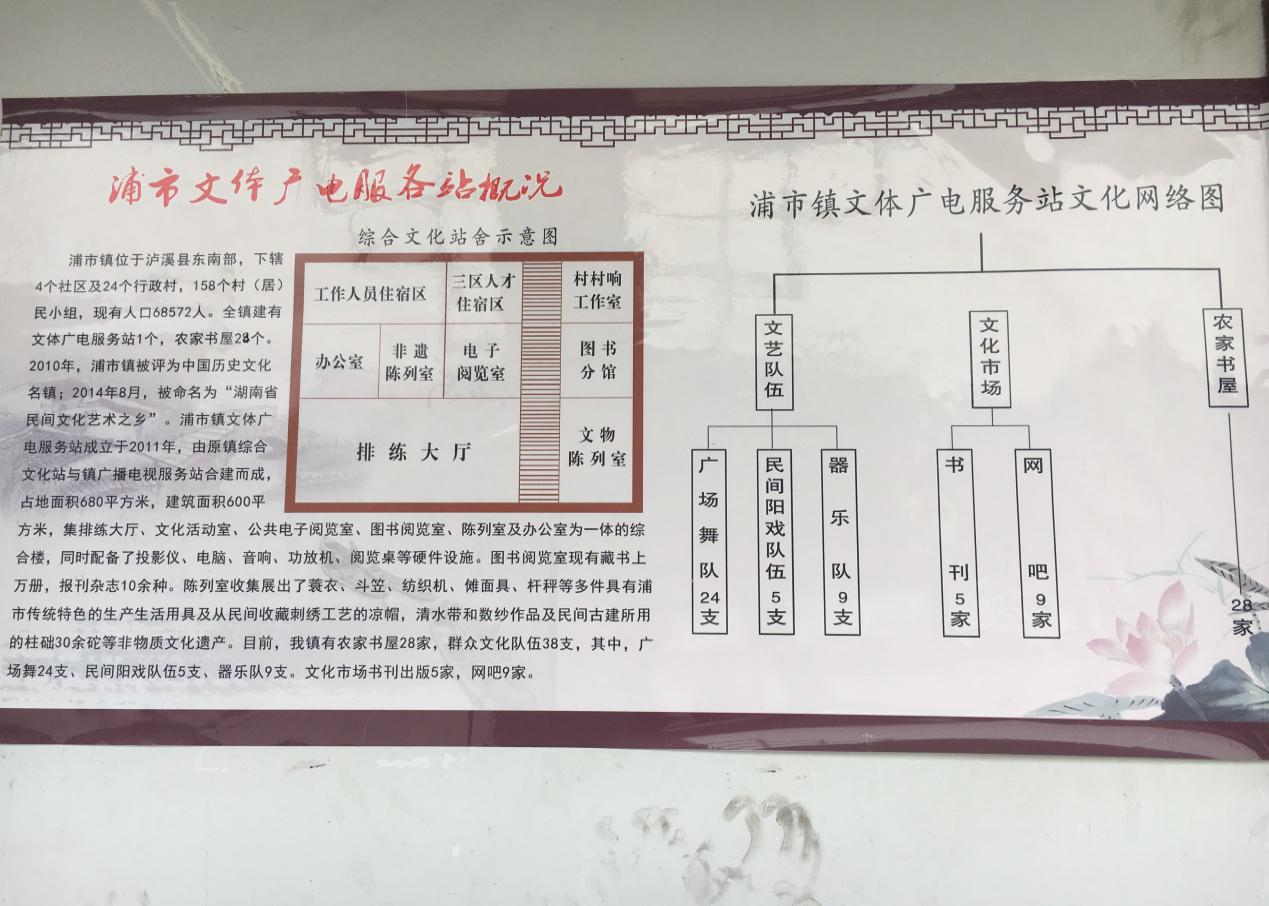 浦市文体广电服务站概况
综合文化站舍示意图
浦市镇位于泸溪县东南部，下辖
4个社区及24个行政村，158个村（居）
民小组，现有人口68572人。全镇建有
文体广电服务站1个，农家书屋28个。
2010年，浦市镇被评为中国历史文化
名镇；2014年8月，被命名为“湖南省
民间文化艺术之乡”。浦市镇文体广
电服务站成立于2011年，由原镇综合
文化站与镇广播电视服务站合建而成，
占地面积680平方米，建筑面积600平
方米，集排练大厅、文化活动室、公共电子阅览室、图书阅览室、陈列室及办公室为一体的综
合楼，同时配备了投影仪、电脑、音响、功放机、阅览桌等硬件设施。图书阅览室现有藏书上
万册，报刊杂志10余种。陈列室收集展出了蓑衣、斗笠、纺织机、傩面具、杆秤等多件具有浦
市传统特色的生产生活用具及从民间收藏刺绣工艺的凉帽，清水带和数纱作品及民间古建所用
的柱础30余砣等非物质文化遗产。目前，我镇有农家书屋28家，群众文化队伍38支，其中，广
场舞24支、民间阳戏队伍5支、器乐队9支。文化市场书刊出版5家，网吧9家。
工作人员住宿区
三区人才
住宿区
村村响
工作室
办公室
非遗
陈列室
电子
阅览室
图书
分馆
排练大厅
文物
陈列室
浦市镇文体广电服务站文化网络图
文艺队伍
文化市场
农家书屋
广场舞队24支
民间阳戏队伍5支
器乐队9支
书刊5家
网吧9家
28家